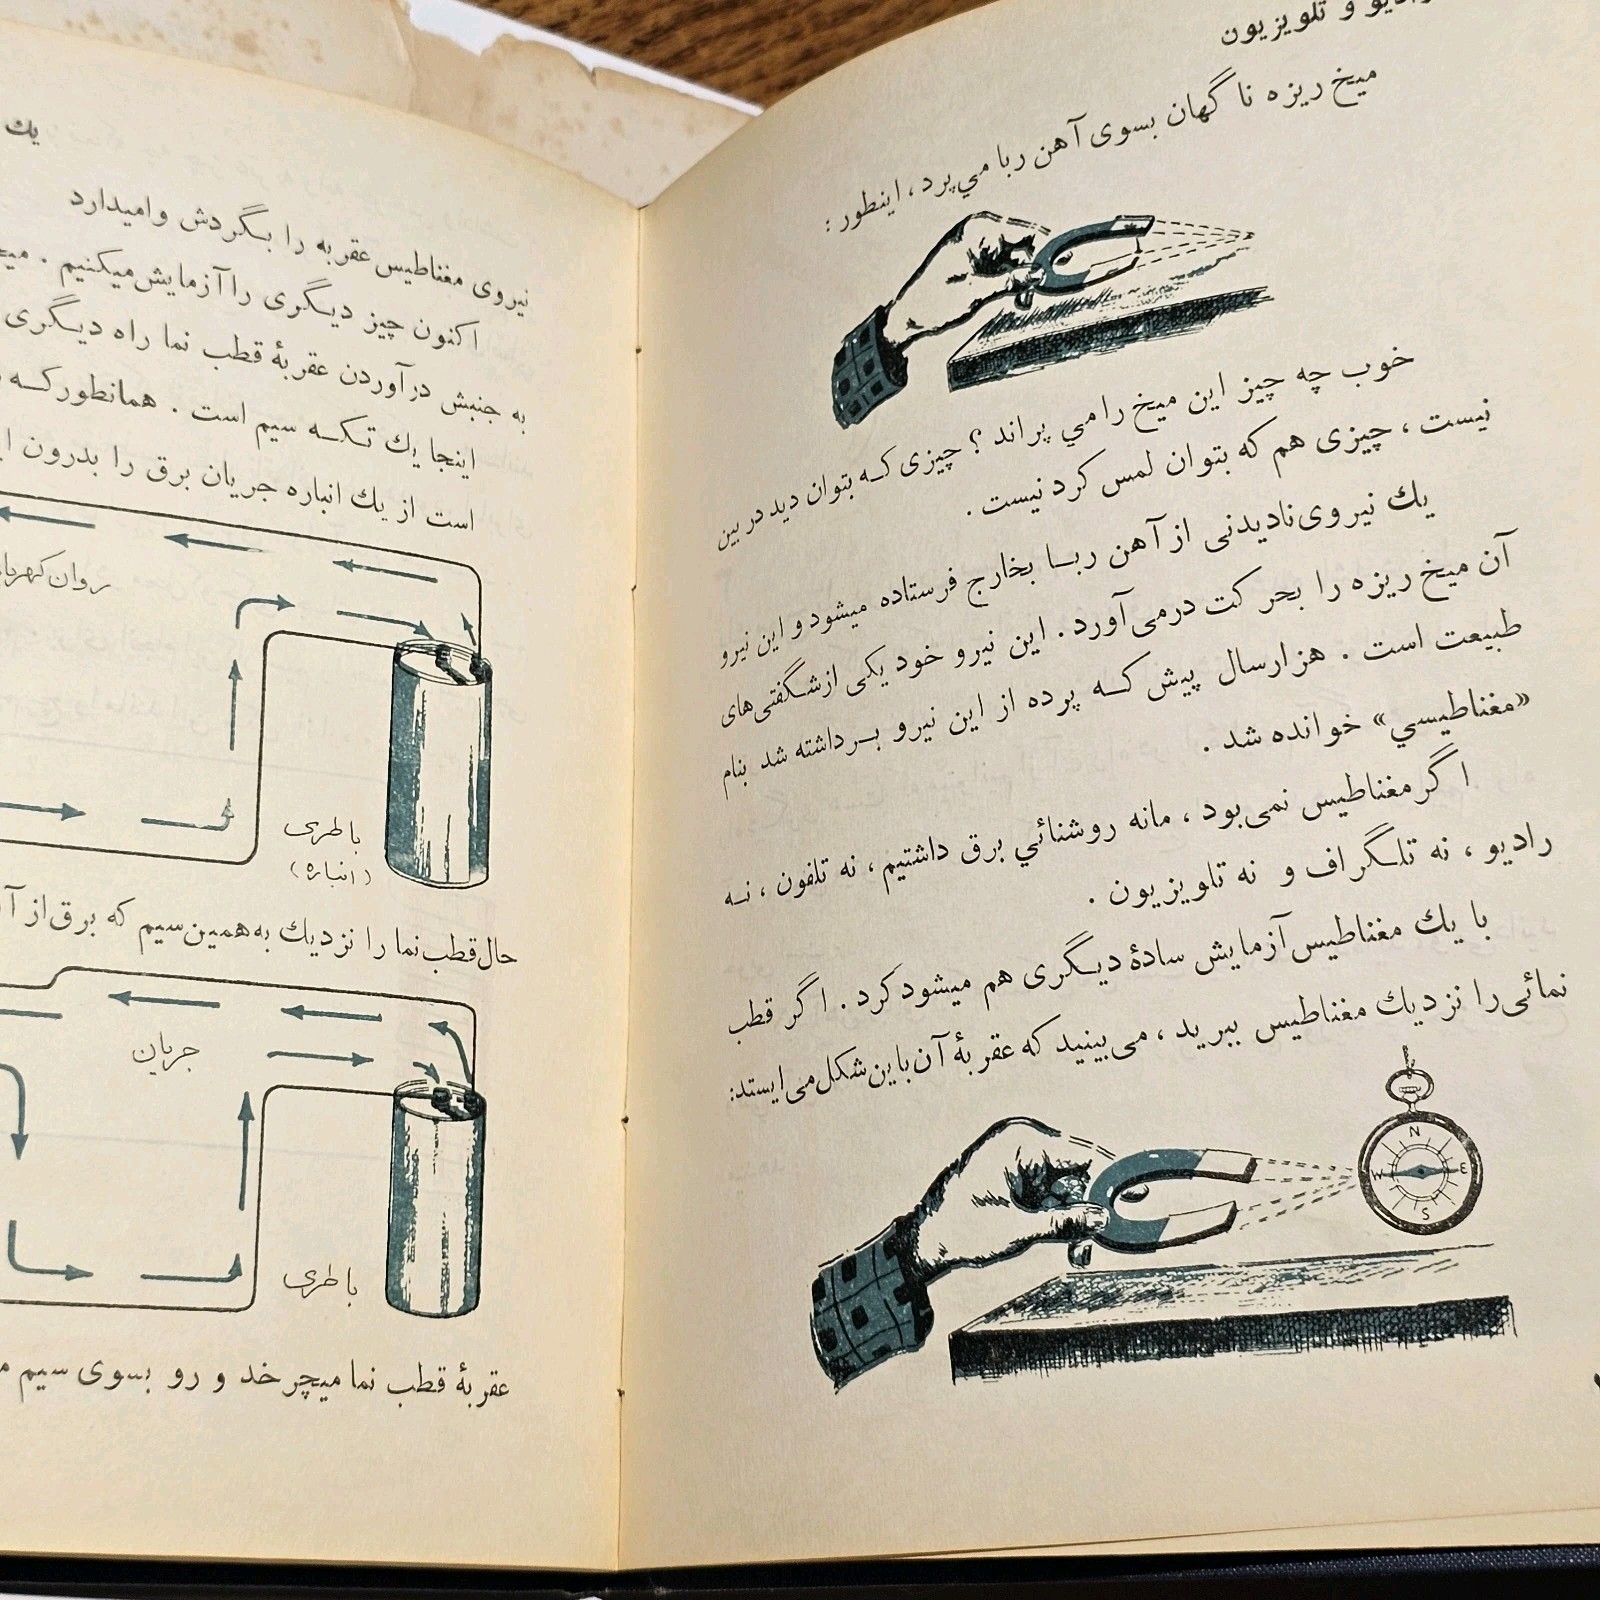 رادیو و تلویزیون
میخ ریزه ناگهان بسوی آهن ربا می‌پرد ، اینطور :
خوب چه چیز این میخ را می پراند ؟ چیزی که بتوان دید در بین
نیست ، چیزی هم که بتوان لمس کرد نیست .
یك نیروی نادیدنی از آهن ربا بخارج فرستاده میشود و این نیرو
آن میخ ریزه را بحرکت درمی‌آورد . این نیرو خود یکی از شگفتی‌های
طبیعت است . هزارسال پیش که پرده از این نیرو برداشته شد بنام
«مغناطیسي» خوانده شد .
اگر مغناطیس نمی‌بود ، مانه روشنائي برق داشتیم ، نه تلفون ، نه
رادیو ، نه تلگراف و نه تلویزیون .
با یك مغناطیس آزمایش سادهٔ دیگری هم میشود کرد . اگر قطب
نمائی را نزدیك مغناطیس ببرید ، می‌بینید که عقربهٔ آن باین شکل می‌ایستد:
N
W E
S
یك
نیروی مغناطیس عقربه را بگردش وامیدارد
اکنون چیز دیگری را آزمایش میکنیم .
به جنبش درآوردن عقربهٔ قطب نما راه دیگری
اینجا یك تکه سیم است . همانطور که
است از یك انباره جریان برق را بدرون
روان
باطری
(انباره)
حال قطب نما را نزدیك به همین سیم که برق از
جریان
باطری
عقربهٔ قطب نما میچرخد و رو بسوی سیم